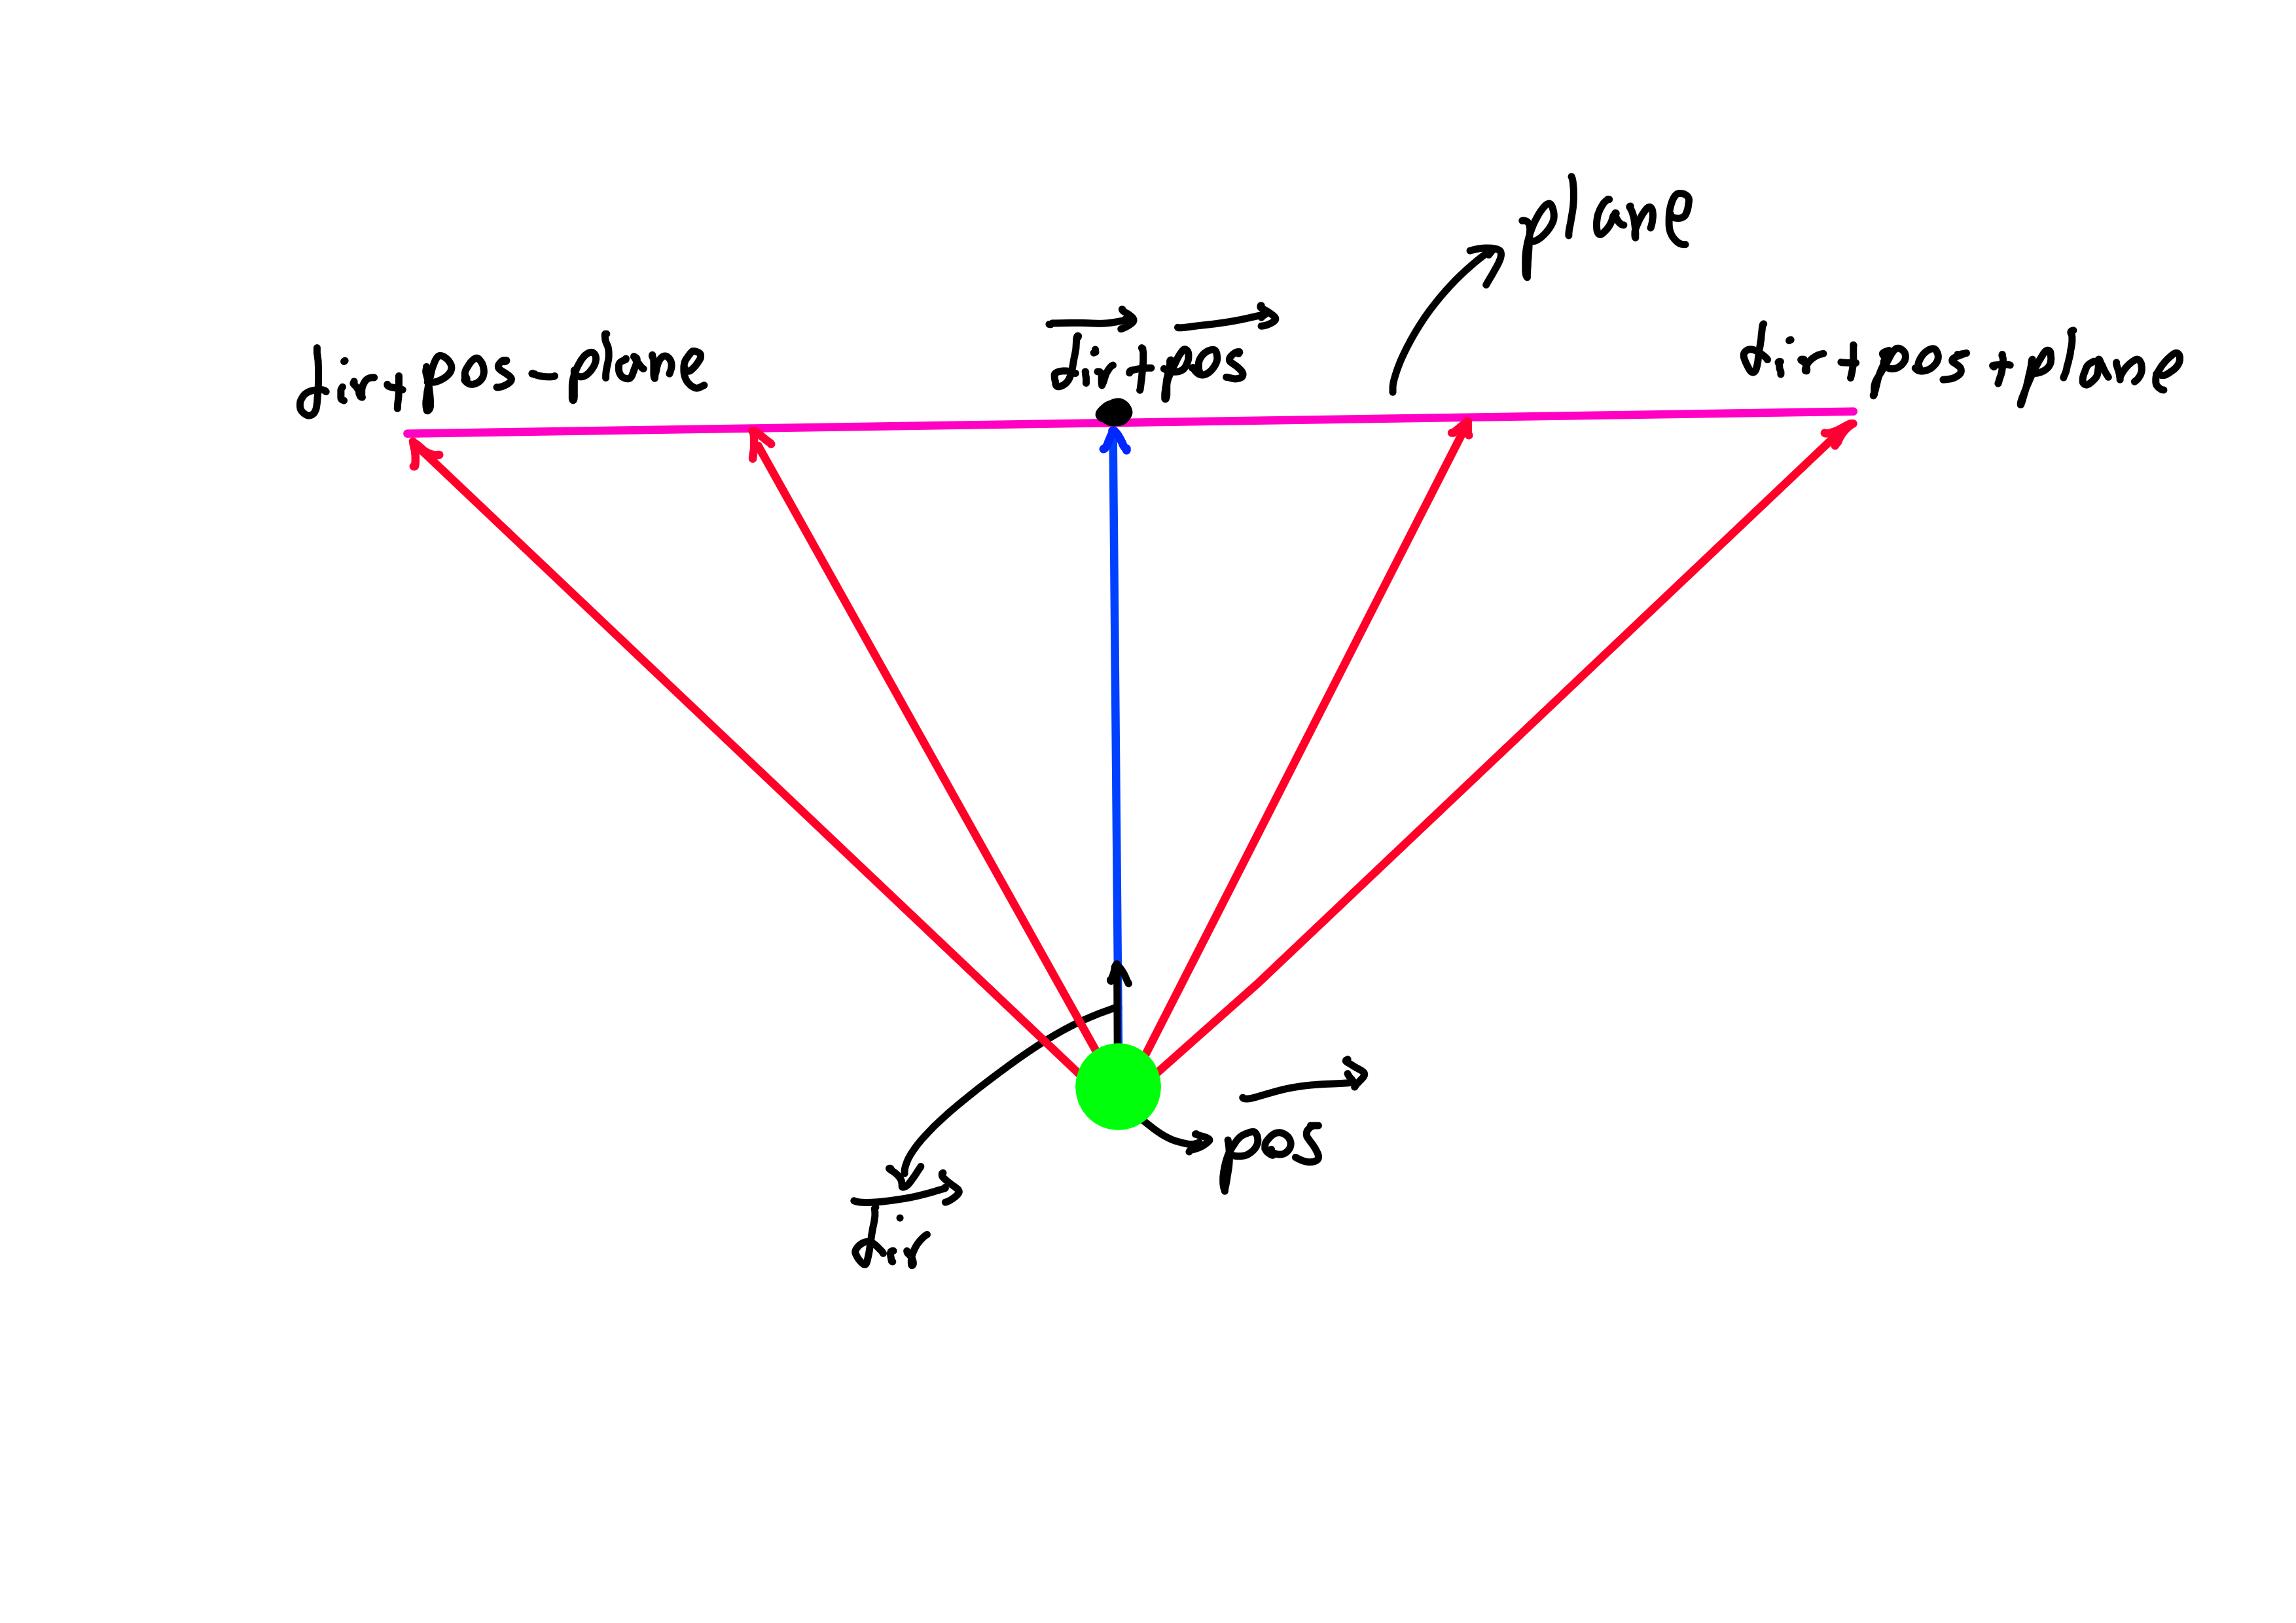 plane
dir+pos-plane
dir+pos
dir+pos+plane
pos
dir